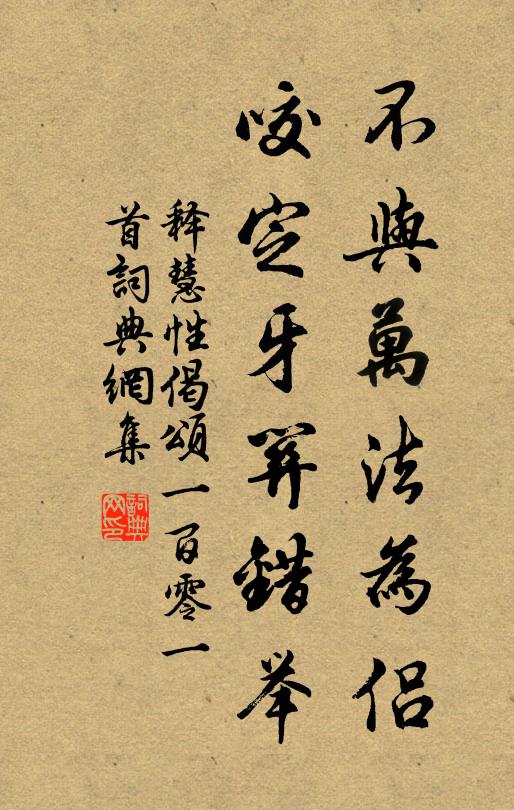 不與萬法為侶
咬定牙關錯举
释慧性偈頌一百零一
首詞典網集
詞典
网印